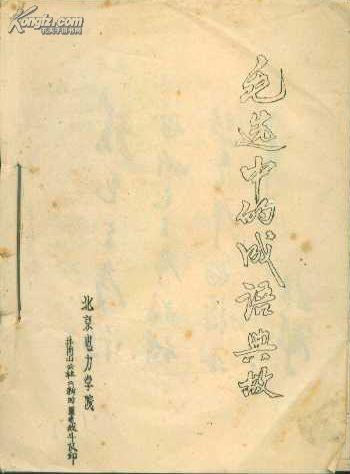 Kongfz.com
孔夫子旧书网
毛选中的成语典故
北京电力学院
井岗山公社
战斗队印